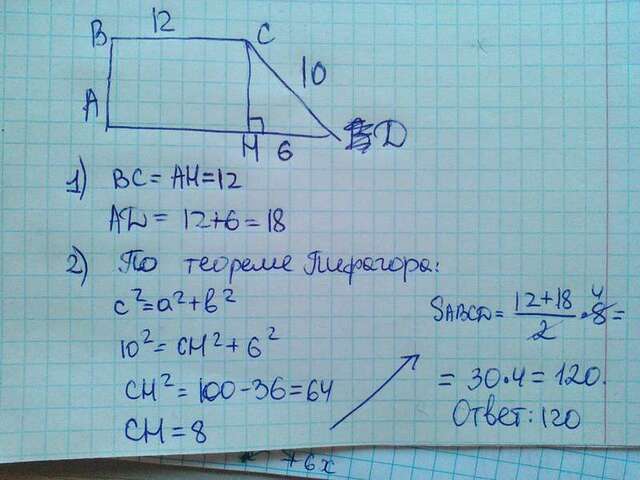 12
B
C
10
A
H
6
D
1) BC = AH = 12
AD = 12+6 = 18
2) По теореме Пифагора:
c² = a² + b²
10² = CH² + 6²
CH² = 100 - 36 = 64
CH = 8
SABCD = 12+18/2 · 8 4 =
= 30·4 = 120.
Ответ: 120
+6x